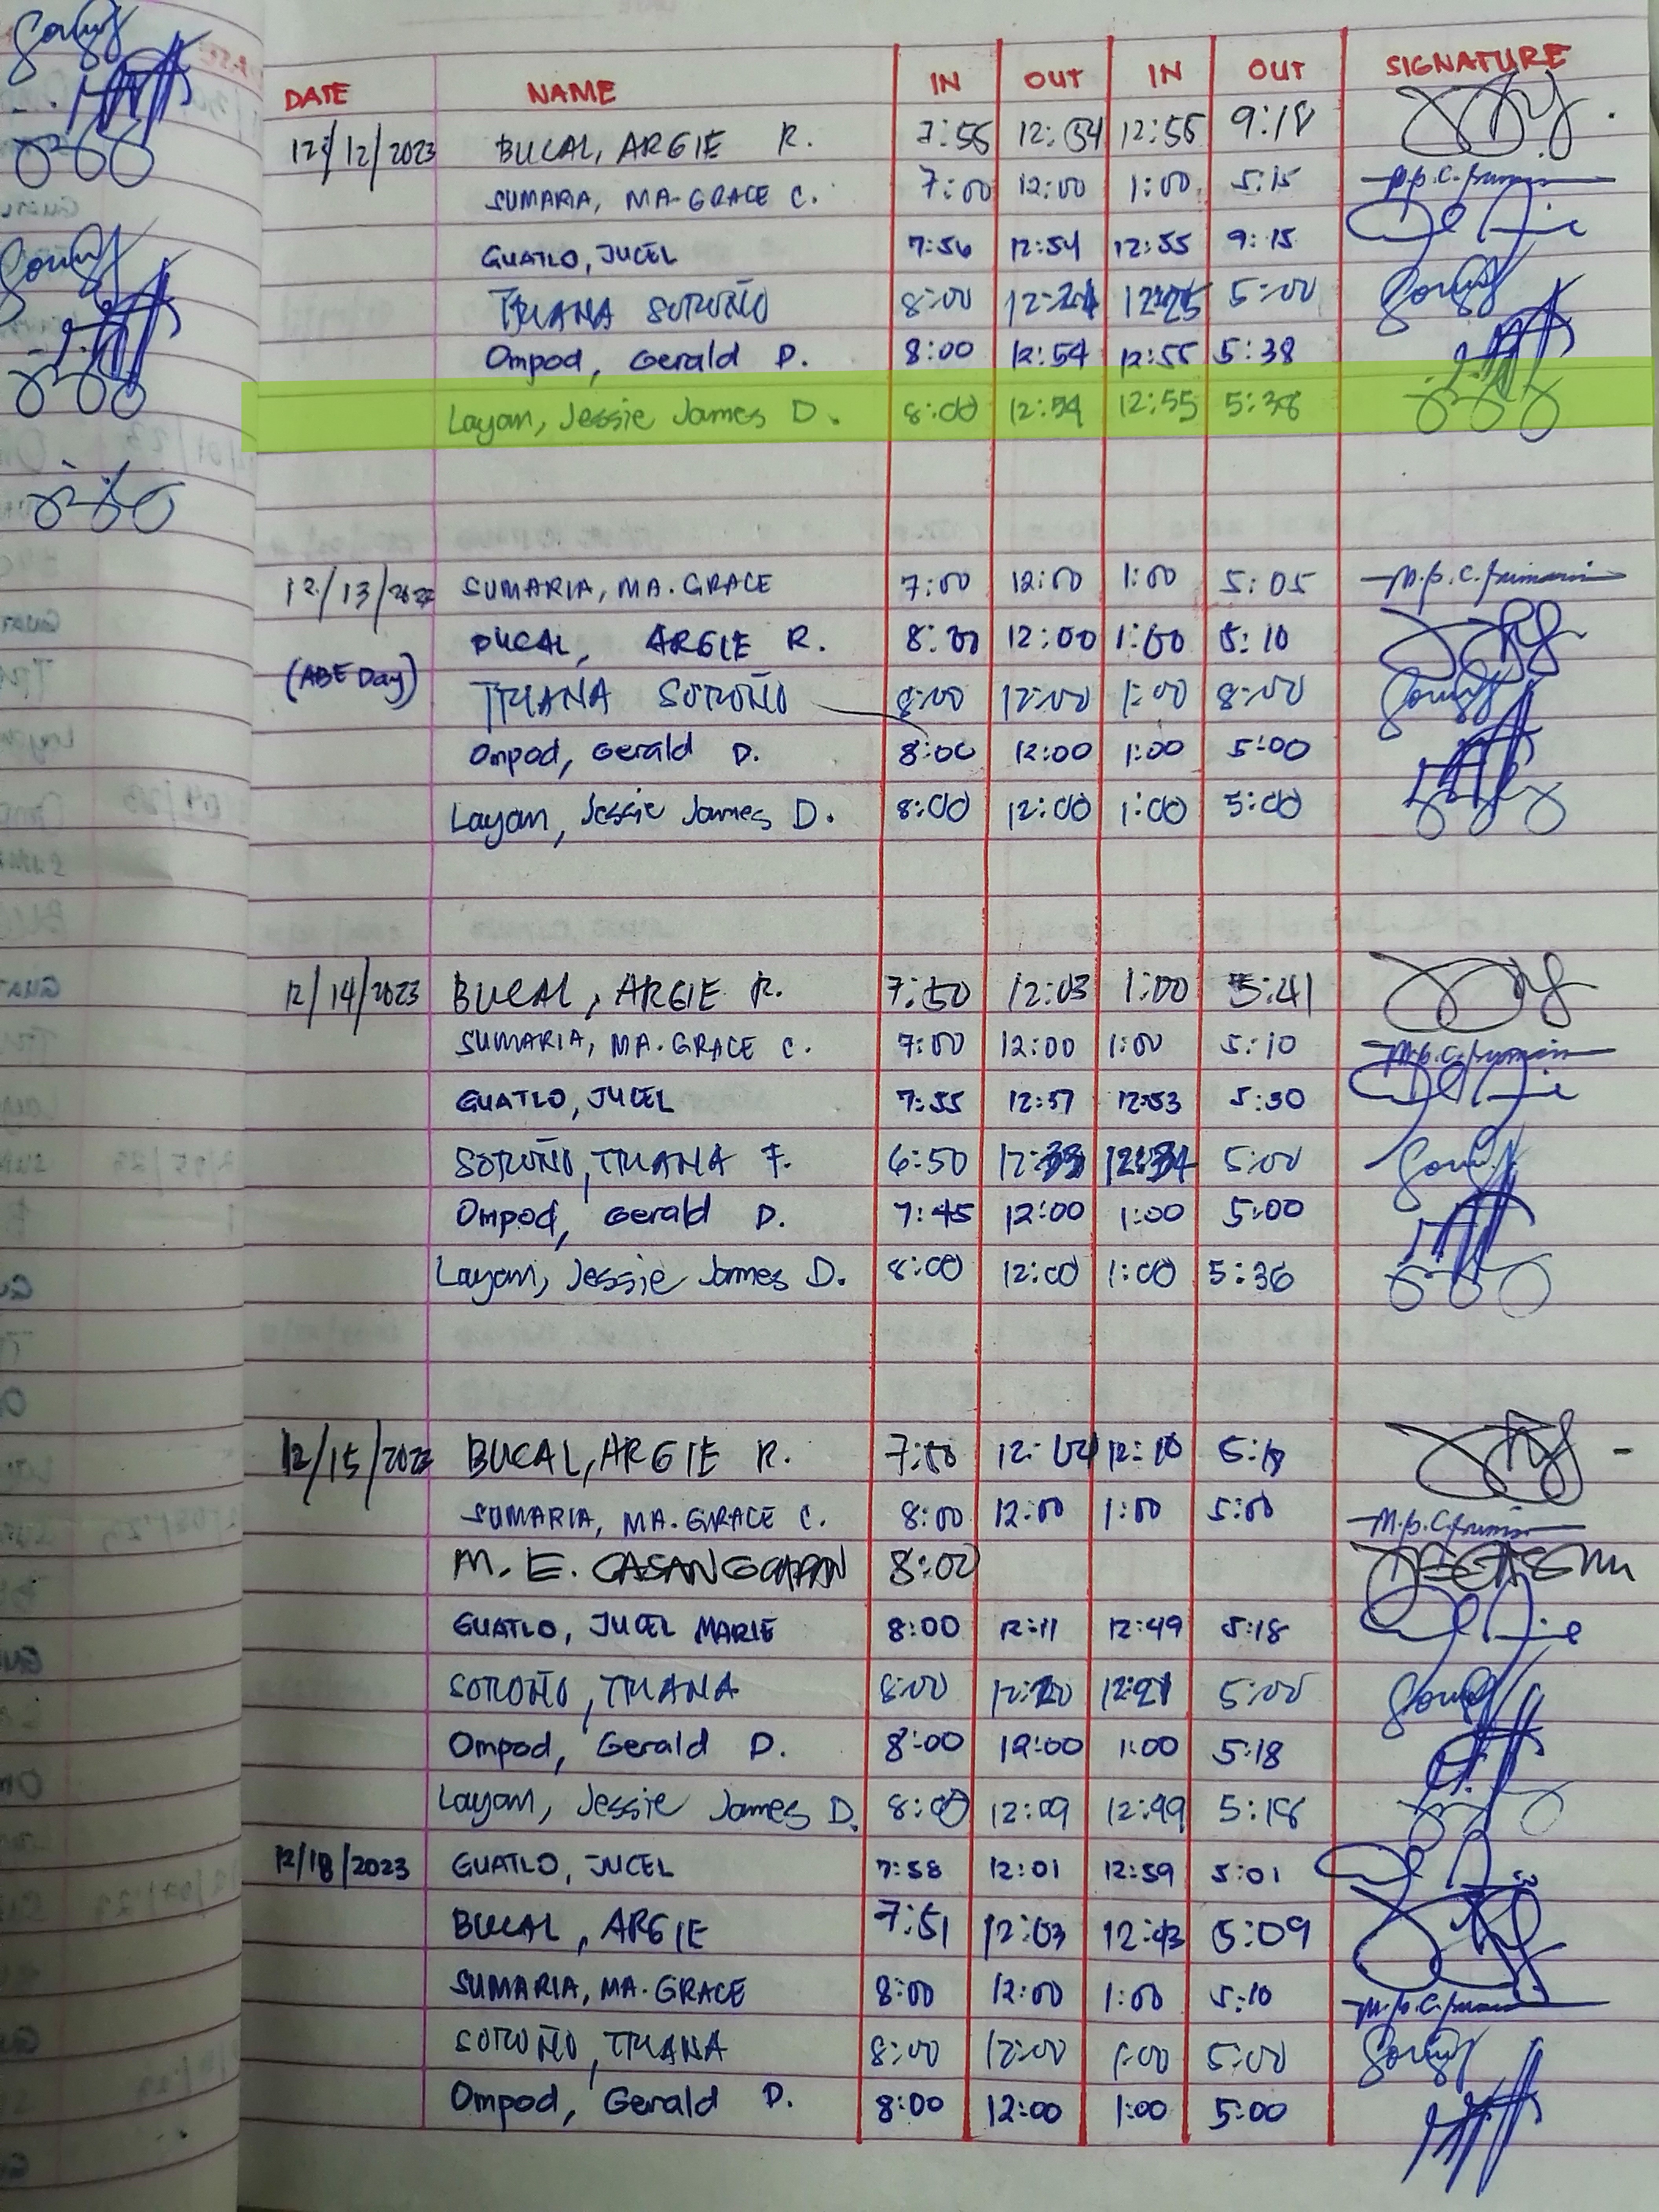 DATE NAME IN OUT IN OUT SIGNATURE
12/12/2023 BUCAL, ARGIE R. 7:55 12:54 12:55 9:18
SUMARIA, MA. GRACE C. 7:00 12:00 1:00 5:15
GUATLO, JUCEL 7:56 12:54 12:55 9:15
TRIANA SOROÑO 8:00 5:00
Ompod, Gerald D. 8:00 12:54 12:55 5:38
Layam, Jessie James D. 8:00 12:54 12:55 5:38
12/13/2023 SUMARIA, MA. GRACE 7:00 12:00 1:00 5:05
BUCAL, ARGIE R. 8:00 12:00 1:00 5:10
(ABE Day) TRIANA SOROÑO 8:00 12:00 1:00 8:00
Ompod, Gerald D. 8:00 12:00 1:00 5:00
Layam, Jessie James D. 8:00 12:00 1:00 5:00
12/14/2023 BUCAL, ARGIE R. 7:50 12:03 1:00 5:41
SUMARIA, MA. GRACE C. 7:00 12:00 1:00 5:10
GUATLO, JUCEL 7:55 12:53 5:30
SOROÑO, TRIANA F. 6:50 12:33 12:34 5:00
Ompod, Gerald D. 7:45 12:00 1:00 5:00
Layam, Jessie James D. 8:00 12:00 1:00 5:36
12/15/2023 BUCAL, ARGIE R. 12:10
SUMARIA, MA. GRACE C. 8:00 12:00 1:00 5:00
M. E. CASANGCAPAN 8:00
GUATLO, JUCEL MARIE 8:00 12:11 12:49 5:18
SOROÑO, TRIANA 8:00 12:20 12:21 5:00
Ompod, Gerald D. 8:00 12:00 1:00 5:18
Layam, Jessie James D. 8:00 12:09 12:49 5:18
12/18/2023 GUATLO, JUCEL 7:58 12:01 12:59 5:01
BUCAL, ARGIE 7:51 12:03 12:43 5:09
SUMARIA, MA. GRACE 8:00 12:00 1:00 5:10
SOROÑO, TRIANA 8:00 12:00 1:00 5:00
Ompod, Gerald D. 8:00 12:00 1:00 5:00